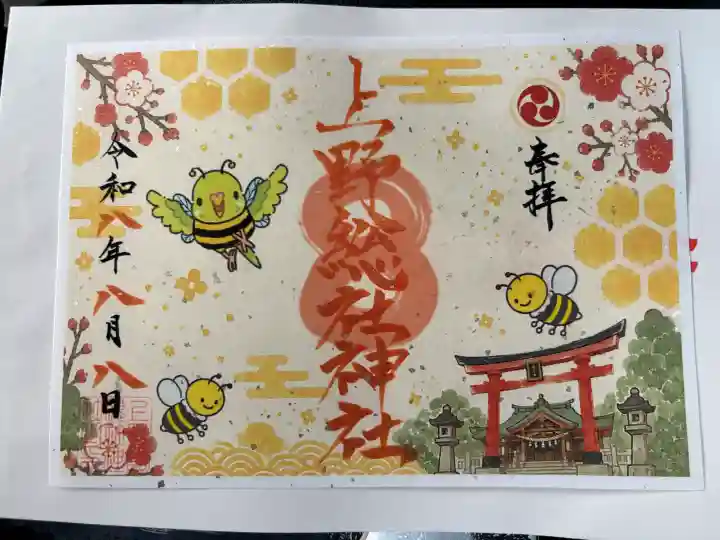 奉拝
上野総社神社
令和八年八月八日